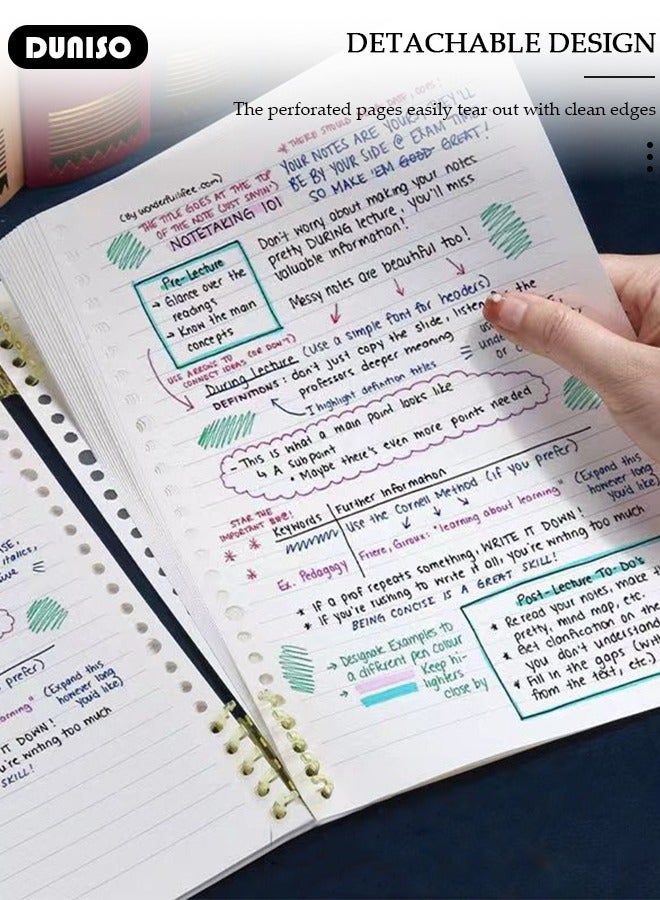 DUNISO
DETACHABLE DESIGN
The perforated pages easily tear out with clean edges
(By wonderfulifee.com)
THE TITLE GOES AT THE TOP
OF THE NOTE (JUST SAYIN')
NOTETAKING 101
* THERE SHOULD
YOUR NOTES ARE YOURS. THEY'LL
BE BY YOUR SIDE @ EXAM TIME
SO MAKE 'EM GOOD GREAT!
Pre-Lecture
→ Glance over the
readings
→ Know the main
concepts
Don't worry about making your notes
pretty DURING lecture, you'll miss
valuable information!
Messy notes are beautiful too!
USE ARROWS TO
CONNECT IDEAS (OR DON'T)
During Lecture (Use a simple font for headers)
DEFINITIONS: don't just copy the slide, listen for the
professors deeper meaning
I highlight definition titles
- This is what a main point looks like
↳ A subpoint
• Maybe there's even more points needed
STAR THE
IMPORTANT ONE!
Keywords
Further Information
Use the Cornell Method (if you prefer)
(Expand this
however long
you'd like)
Ex. Pedagogy
Friere, Giroux: "learning about learning"
* If a prof repeats something, WRITE IT DOWN!
* If you're rushing to write it all, you're writing too much
BEING CONCISE IS A GREAT SKILL!
→ Designate Examples to
a different pen colour
→ Keep hi-
lighters
close by
Post-Lecture To-Do's
* Reread your notes, make
pretty, mind map, etc.
* Get clarification on the
you don't understand
* Fill in the gaps (with
from the text, etc.)
prefer)
(Expand this
however long
you'd like)
IT DOWN!
you're writing too much
SKILL!